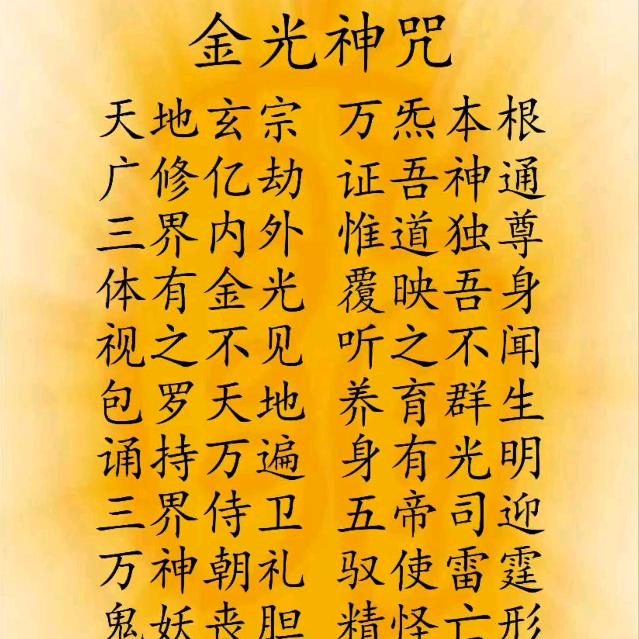 金光神咒
天地玄宗 万炁本根
广修亿劫 证吾神通
三界内外 惟道独尊
体有金光 覆映吾身
视之不见 听之不闻
包罗天地 养育群生
诵持万遍 身有光明
三界侍卫 五帝司迎
万神朝礼 驭使雷霆
鬼妖丧胆 精怪亡形